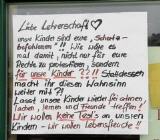 Liebe Lehrerschaft ♡
unsre Kinder sind eure „Schutz-
befohlenen"!! Wie wäre es
mal damit, nicht nur für eure
Rechte zu protestieren, sondern
für unsre Kinder ??!! Stattdessen
macht ihr diesen Wahnsinn
weiter mit?!
Lasst unsre Kinder wieder frei atmen,
lachen, lernen und Freunde treffen!
Wir wollen keine Tests an unsren
Kindern - wir wollen Lebensfreude!!